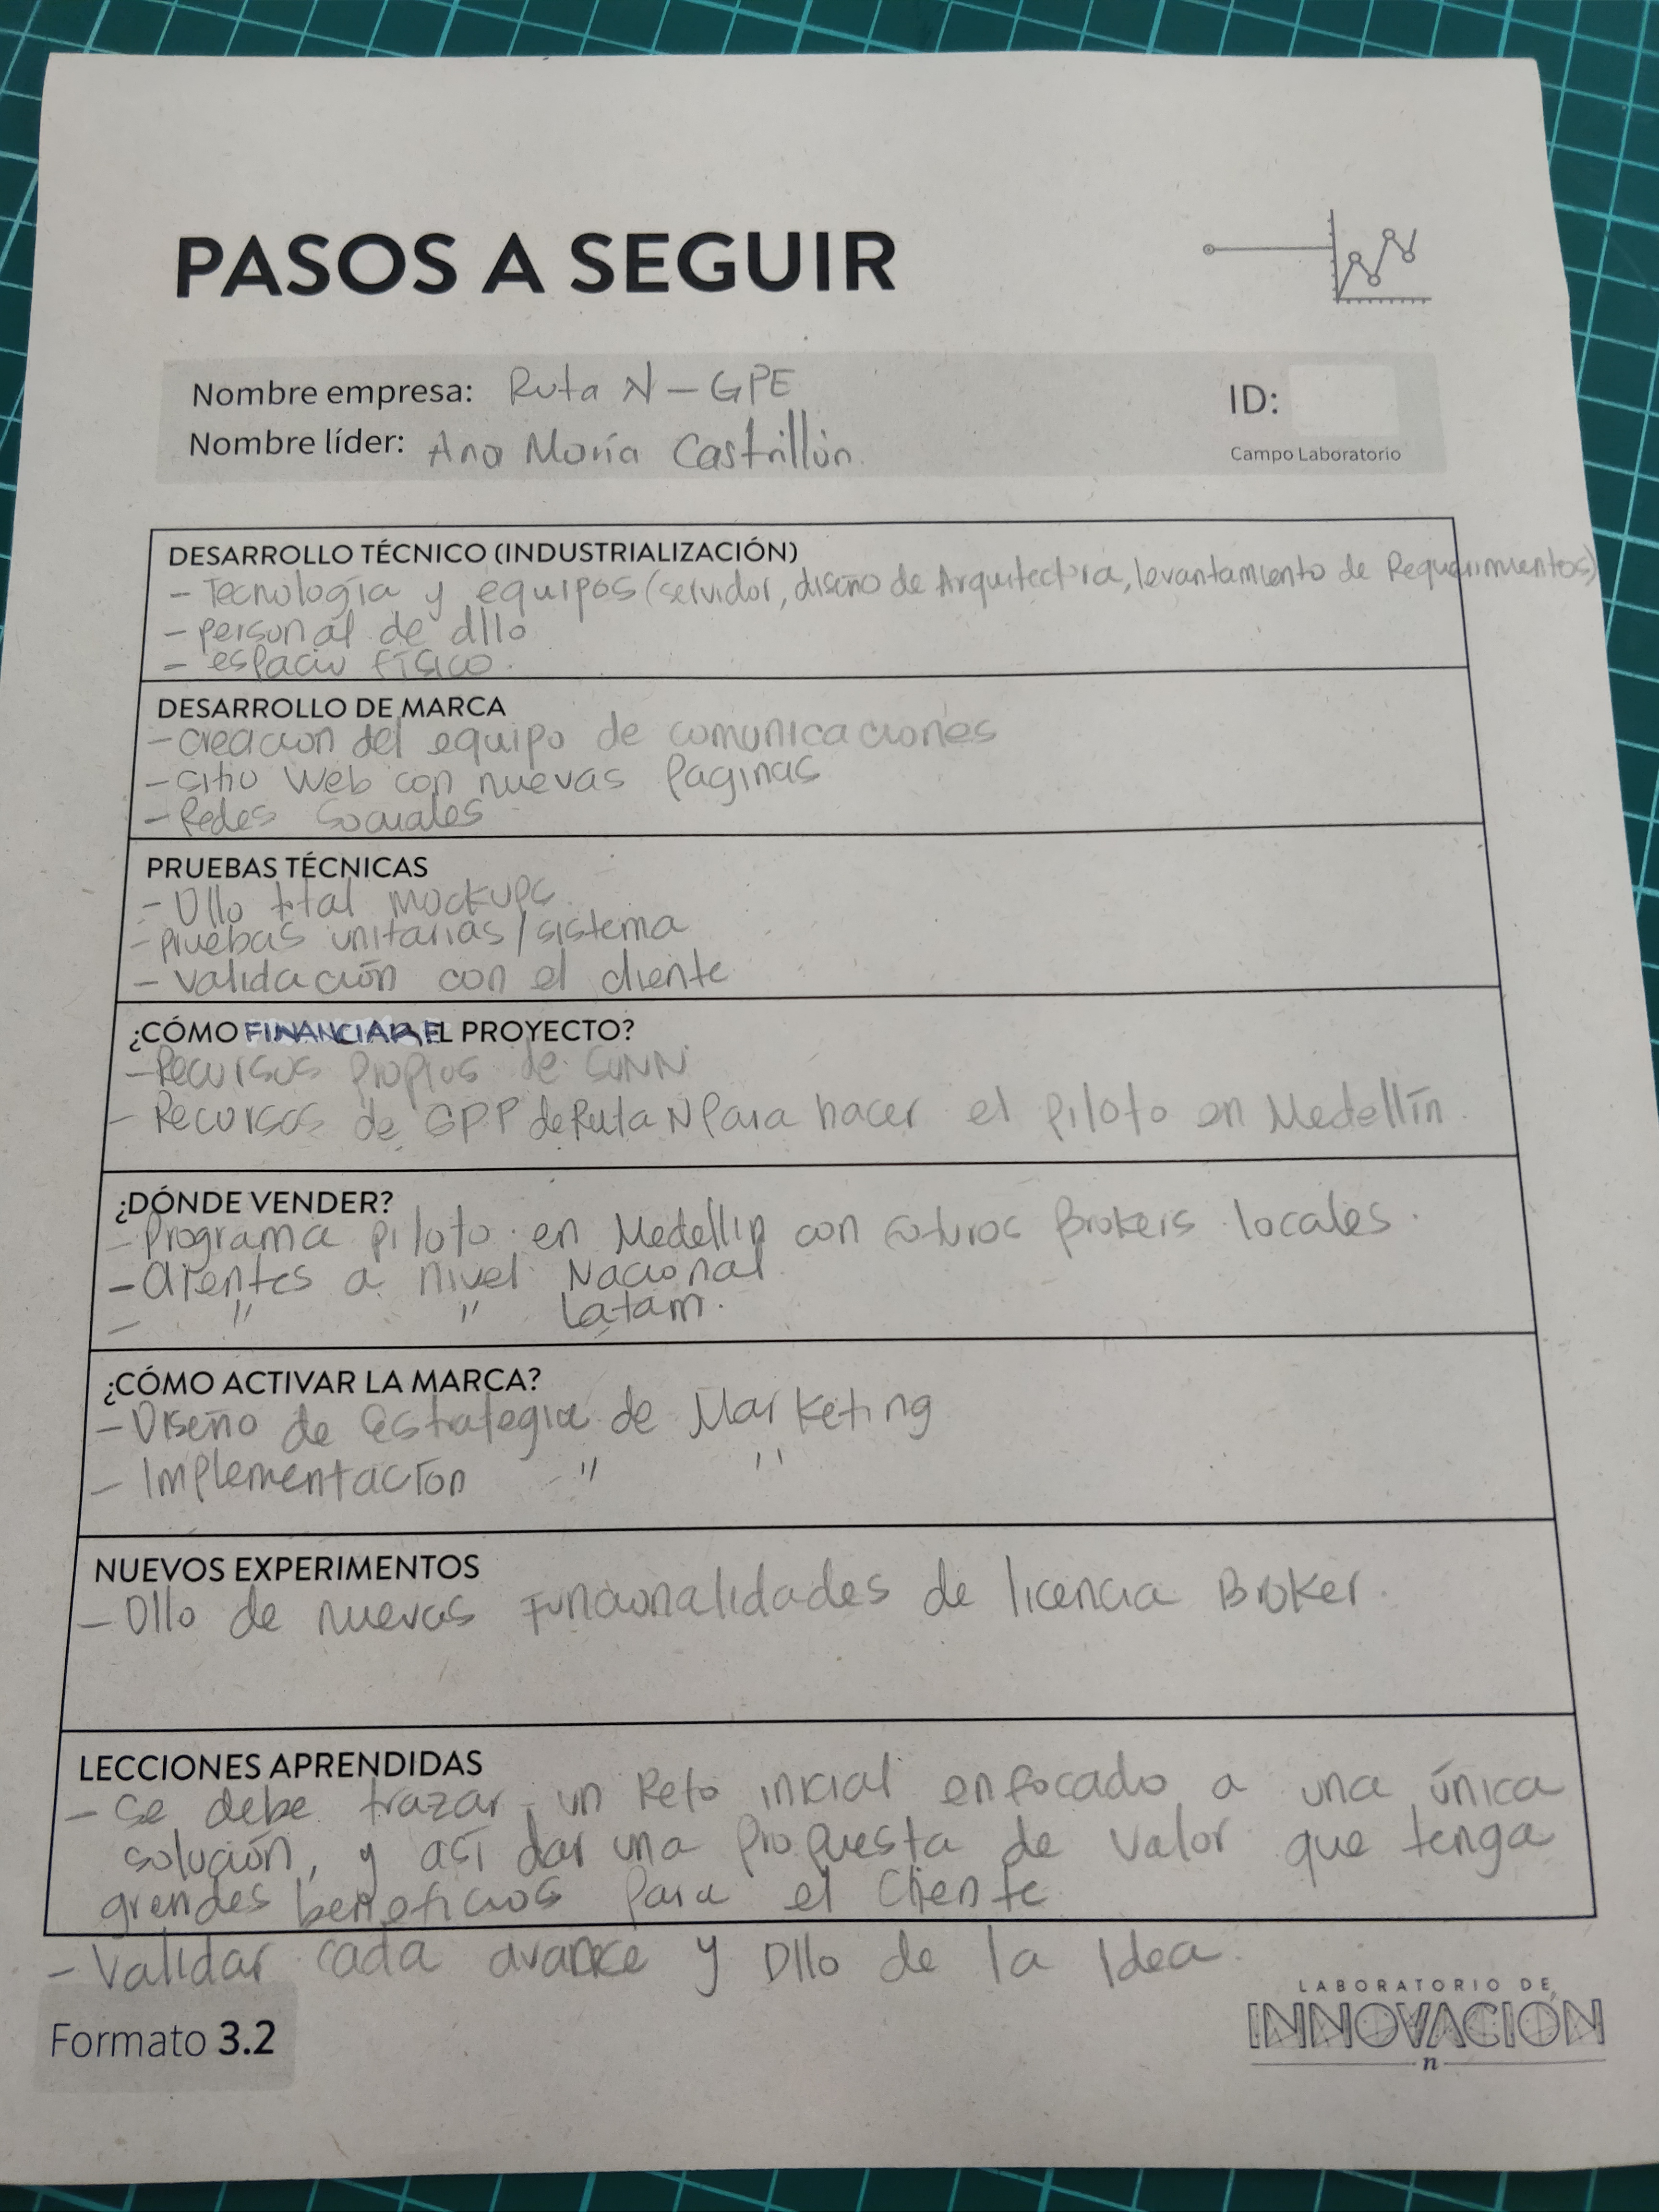 PASOS A SEGUIR
Nombre empresa: Ruta N - GPE
ID:
Nombre líder: Ana María Castrillón.
Campo Laboratorio
DESARROLLO TÉCNICO (INDUSTRIALIZACIÓN)
- Tecnología y equipos (servidor, diseño de Arquitectura, levantamiento de Requerimientos)
- personal de dllo
- espacio físico.
DESARROLLO DE MARCA
- creación del equipo de comunicaciones
- sitio Web con nuevas Paginas
- Redes Sociales
PRUEBAS TÉCNICAS
- Dllo total mockups
- pruebas unitarias / sistema
- validación con el cliente
¿CÓMO FINANCIAR EL PROYECTO?
- Recursos Propios de
- Recursos de GPP de Ruta N Para hacer el piloto en Medellín.
¿DÓNDE VENDER?
- Programa piloto en Medellín con futuros Brokers locales.
- clientes a nivel Nacional
- " " Latam.
¿CÓMO ACTIVAR LA MARCA?
- Diseño de Estrategia de Marketing
- Implementación " "
NUEVOS EXPERIMENTOS
- Dllo de nuevas Funcionalidades de licencia Broker.
LECCIONES APRENDIDAS
- Se debe trazar un Reto inicial enfocado a una única
solución, y así dar una Propuesta de Valor que tenga
grandes beneficios Para el Cliente
- Validar cada avance y Dllo de la Idea.
Formato 3.2
LABORATORIO DE
INNOVACIÓN
n